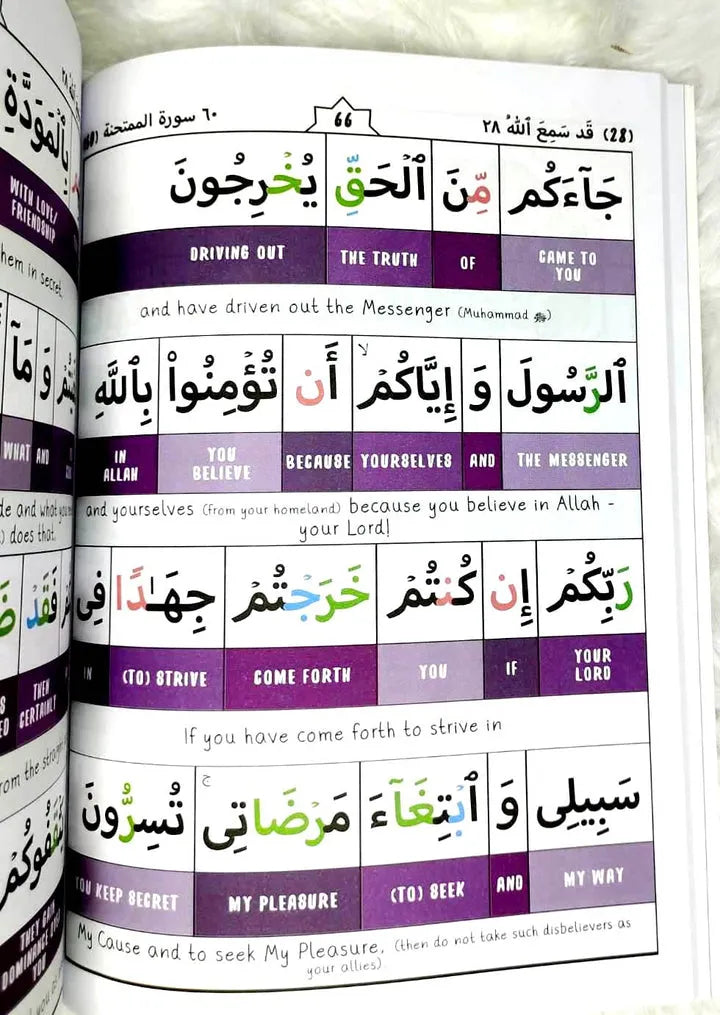 (28) قَد سَمِعَ ٱللَّهُ ٢٨
66
٦٠ سورة الممتحنة (60
جَآءَكُم مِّنَ ٱلْحَقِّ يُخْرِجُونَ
CAME TO YOU OF THE TRUTH DRIVING OUT
and have driven out the Messenger (Muhammad ﷺ)
ٱلرَّسُولَ وَ إِيَّاكُمْ ۙ أَن تُؤْمِنُوا۟ بِٱللَّهِ
THE MESSENGER AND YOURSELVES BECAUSE YOU BELIEVE IN ALLAH
and yourselves (from your homeland) because you believe in Allah -
your Lord!
رَبِّكُمْ إِن كُنتُمْ خَرَجْتُمْ جِهَـٰدًا فِى
YOUR LORD IF YOU COME FORTH (TO) STRIVE IN
If you have come forth to strive in
سَبِيلِى وَ ٱبْتِغَآءَ مَرْضَاتِى ۚ تُسِرُّونَ
MY WAY AND (TO) SEEK MY PLEASURE YOU KEEP SECRET
My Cause and to seek My Pleasure, (then do not take such disbelievers as
your allies).
بِٱلْمَوَدَّةِ
WITH LOVE/
FRIENDSHIP
hem in secret,
وَ مَآ
WHAT AND
de and what you
) does that,
فَقَدْ
THEN
CERTAINLY
rom the straigh
THEY GAIN
DOMINANCE OVER
YOU